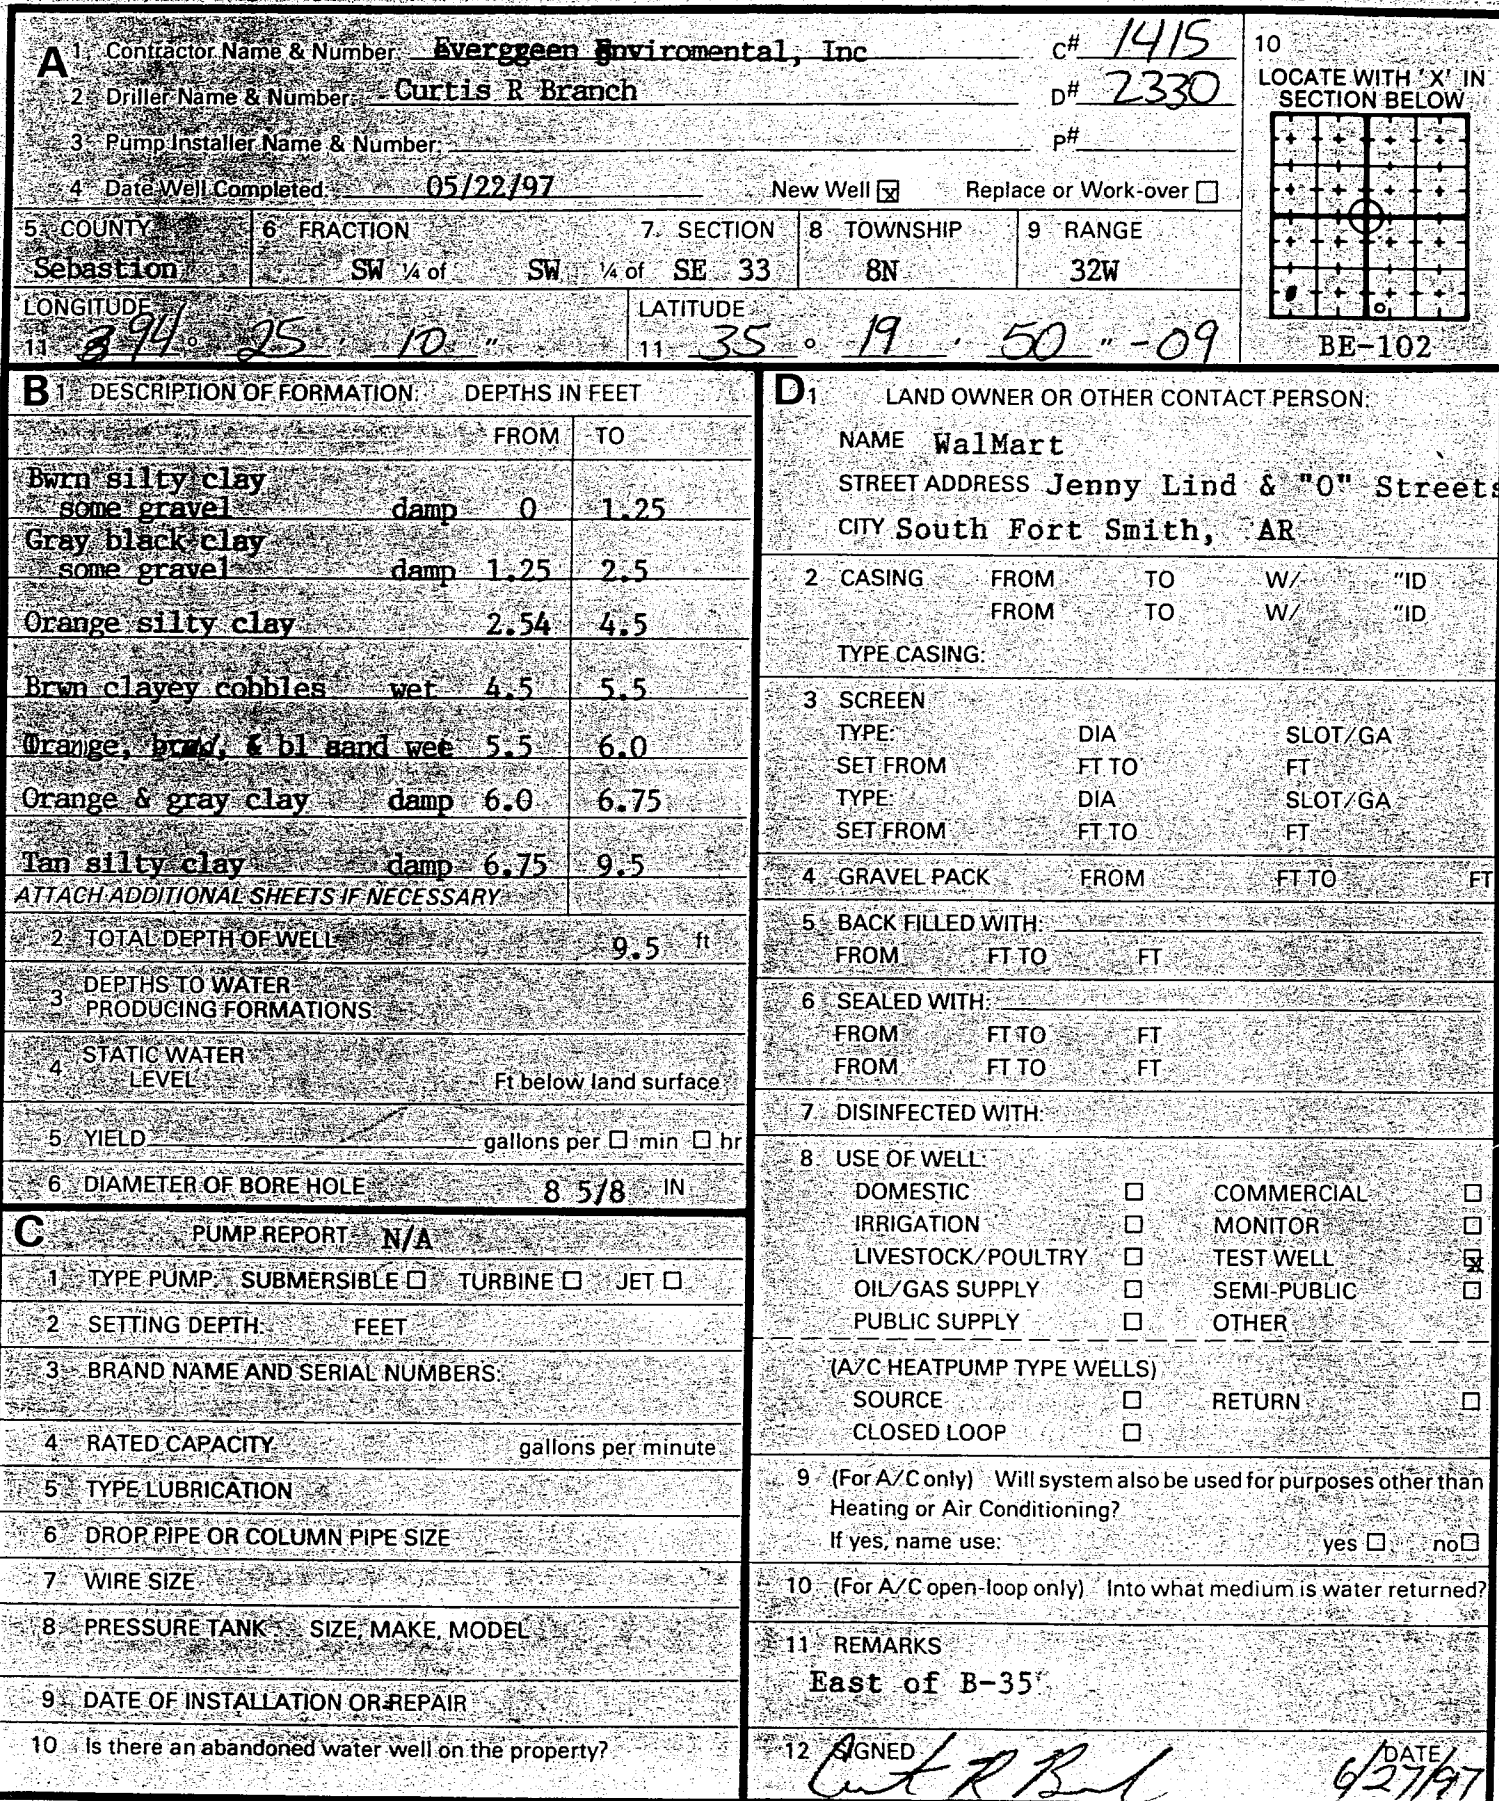 A 1. Contractor Name & Number: Everggeen Enviromental, Inc C# 1415
2 Driller Name & Number: Curtis R Branch D# 2330
3 Pump Installer Name & Number: P#
4 Date Well Completed: 05/22/97 New Well x Replace or Work-over
10
LOCATE WITH 'X' IN
SECTION BELOW
BE-102
5. COUNTY 6 FRACTION 7. SECTION 8 TOWNSHIP 9 RANGE
Sebastion SW ¼ of SW ¼ of SE 33 8N 32W
LONGITUDE LATITUDE
11 94 ° 25 ' 10 " 11 35 ° 19 ' 50 " -09
B 1. DESCRIPTION OF FORMATION: DEPTHS IN FEET
FROM TO
Bwrn silty clay
some gravel damp 0 1.25
Gray black clay
some gravel damp 1.25 2.5
Orange silty clay 2.54 4.5
Brwn clayey cobbles wet 4.5 5.5
Orange, & bl sand wet 5.5 6.0
Orange & gray clay damp 6.0 6.75
Tan silty clay damp 6.75 9.5
ATTACH ADDITIONAL SHEETS IF NECESSARY
2 TOTAL DEPTH OF WELL 9.5 ft
3 DEPTHS TO WATER
PRODUCING FORMATIONS
4 STATIC WATER
LEVEL Ft below land surface
5 YIELD gallons per min hr
6 DIAMETER OF BORE HOLE 8 5/8 IN
C PUMP REPORT N/A
1 TYPE PUMP: SUBMERSIBLE TURBINE JET
2 SETTING DEPTH: FEET
3 BRAND NAME AND SERIAL NUMBERS:
4 RATED CAPACITY gallons per minute
5 TYPE LUBRICATION
6 DROP PIPE OR COLUMN PIPE SIZE
7 WIRE SIZE
8 PRESSURE TANK SIZE, MAKE, MODEL
9 DATE OF INSTALLATION OR REPAIR
10 Is there an abandoned water well on the property?
D 1 LAND OWNER OR OTHER CONTACT PERSON:
NAME WalMart
STREET ADDRESS Jenny Lind & "O" Streets
CITY South Fort Smith, AR
2 CASING FROM TO W/ "ID
FROM TO W/ "ID
TYPE CASING:
3 SCREEN
TYPE: DIA SLOT/GA
SET FROM FT TO FT
TYPE: DIA SLOT/GA
SET FROM FT TO FT
4 GRAVEL PACK FROM FT TO FT
5 BACK FILLED WITH:
FROM FT TO FT
6 SEALED WITH:
FROM FT TO FT
FROM FT TO FT
7 DISINFECTED WITH:
8 USE OF WELL:
DOMESTIC COMMERCIAL
IRRIGATION MONITOR
LIVESTOCK/POULTRY TEST WELL x
OIL/GAS SUPPLY SEMI-PUBLIC
PUBLIC SUPPLY OTHER
(A/C HEATPUMP TYPE WELLS)
SOURCE RETURN
CLOSED LOOP
9 (For A/C only) Will system also be used for purposes other than
Heating or Air Conditioning?
If yes, name use: yes no
10 (For A/C open-loop only) Into what medium is water returned?
11 REMARKS
East of B-35
12 SIGNED Curt R Branch DATE 6/27/97